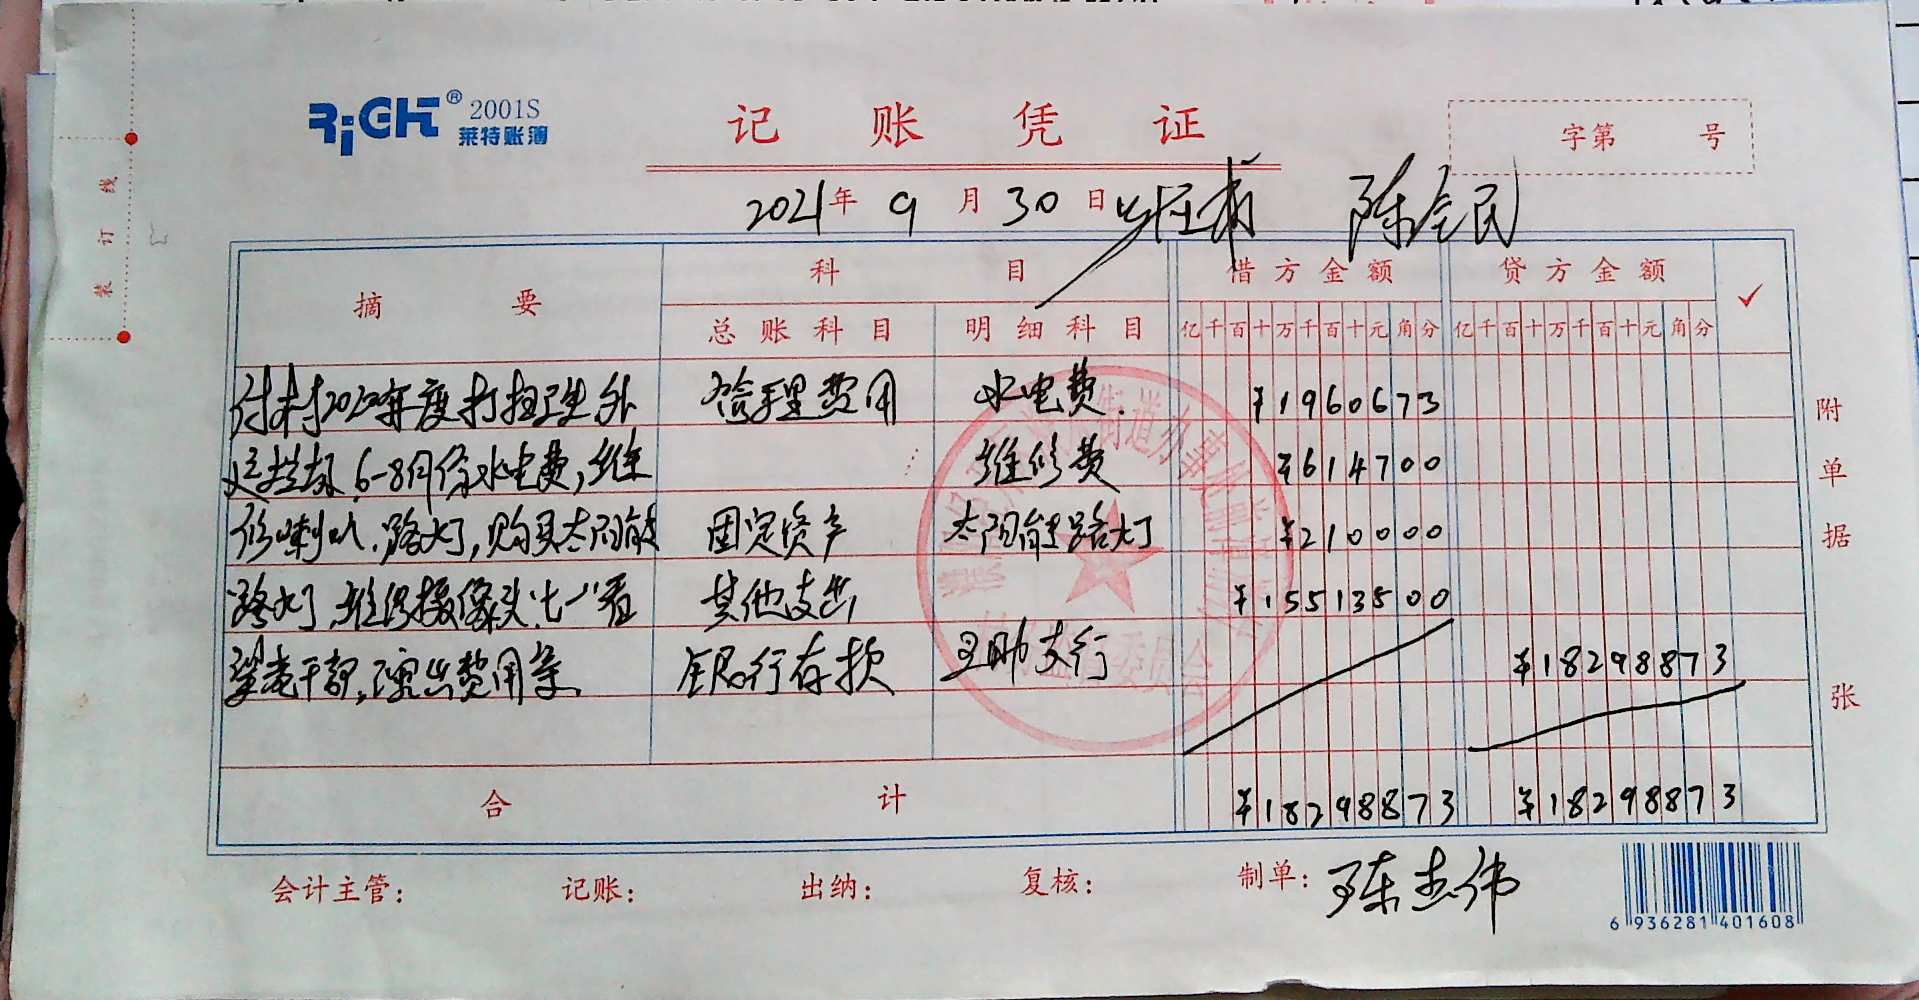 RiGHT® 2001S
莱特账簿
记账凭证
字第 号
2021年 9月 30日
陈全民
装订线
摘要 科目 借方金额 贷方金额 ✓
总账科目 明细科目 亿千百十万千百十元角分 亿千百十万千百十元角分
付村2020年度打扫卫生外 管理费用 水电费 ¥1960673
运垃圾、6-8月份水电费,维 维修费 ¥614700
修喇叭、路灯,购买太阳能 固定资产 太阳能路灯 ¥210000
路灯、维修摄像头、七一看 其他支出 ¥15513500
望老干部,演出费用等. 银行存款 互助支行 ¥18298873
合计 ¥18298873 ¥18298873
附单据 张
会计主管: 记账: 出纳: 复核: 制单: 陈杰伟
6 936281 401608